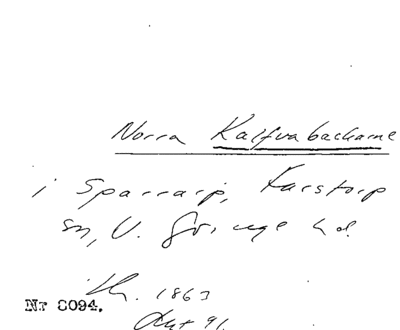 Norra Kalfvabackarne
i Sparrarp, Farstorp
sn, V. Göinge hd.
1863
Nr 8094.